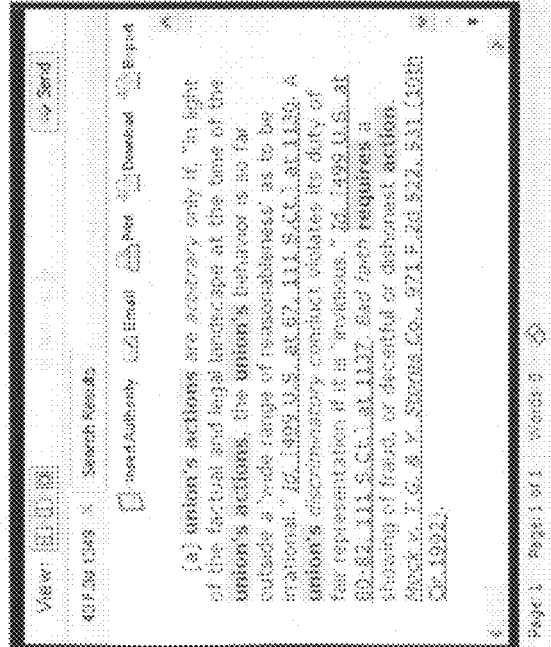 View:
Send
43 F.3d 1343 × Search Results
Insert Authority Email Print Download Export
[a] union's actions are arbitrary only if, "in light
of the factual and legal landscape at the time of the
union's actions, the union's behavior is so far
outside a 'wide range of reasonableness' as to be
irrational." Id. [499 U.S. at 67, 111 S.Ct.] at 1130. A
union's discriminatory conduct violates its duty of
fair representation if it is "invidious." Id. [499 U.S. at
80-82, 111 S.Ct.] at 1137. Bad faith requires a
showing of fraud, or deceitful or dishonest action.
Mock v. T.G. & Y. Stores Co., 971 F.2d 522, 531 (10th
Cir. 1992).
Page 1 Page: 1 of 1 Words: 0